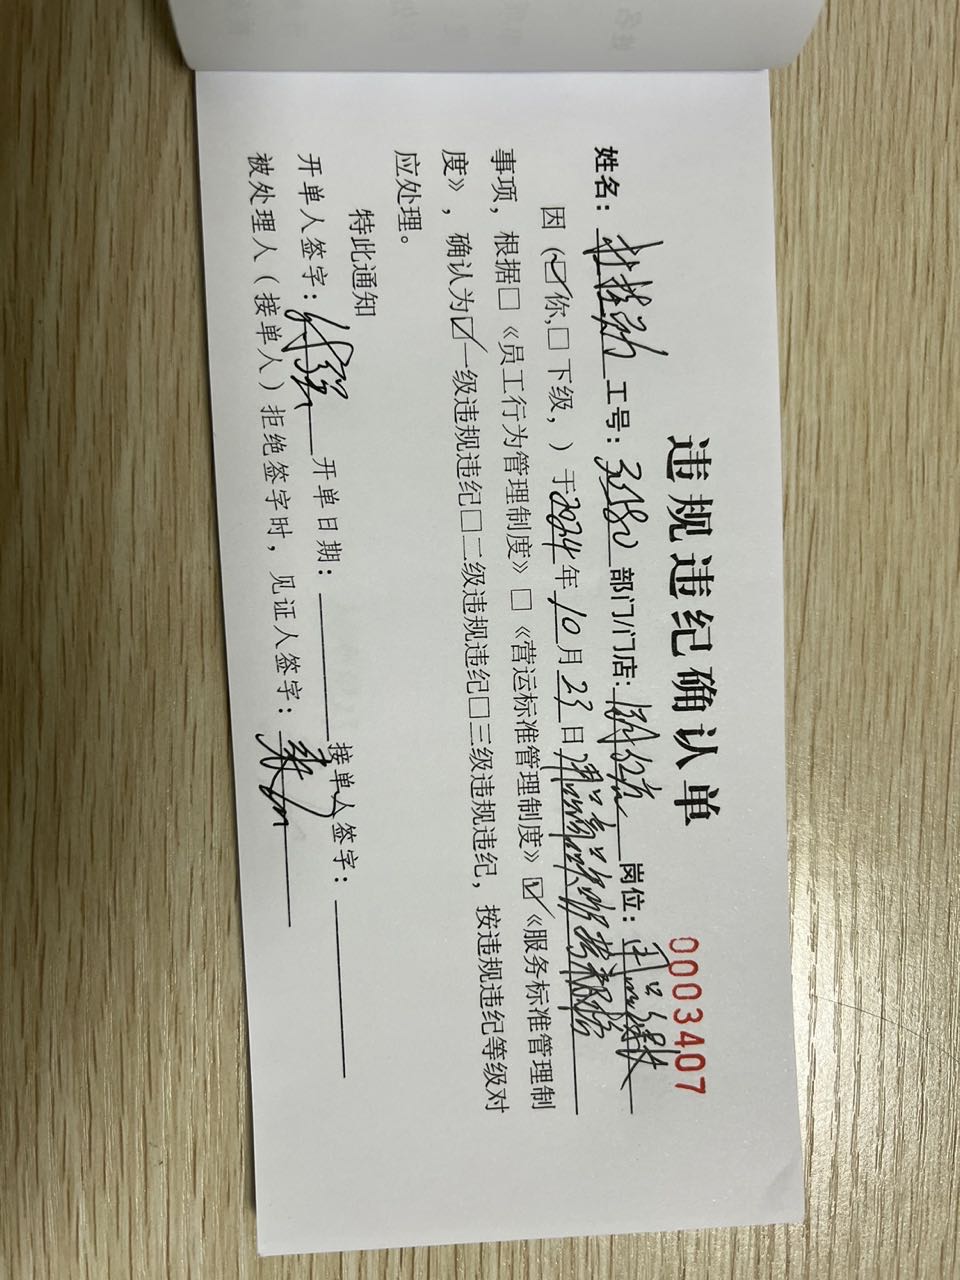 违规违纪确认单
0003407
姓名： 工号：35180 部门/门店： 岗位：
因（☑你,□下级，）于2024年10月23日
事项，根据□《员工行为管理制度》□《营运标准管理制度》☑《服务标准管理制
度》，确认为☑一级违规违纪□二级违规违纪□三级违规违纪，按违规违纪等级对
应处理。
特此通知
开单人签字： 开单日期： 接单人签字：
被处理人（接单人）拒绝签字时，见证人签字：